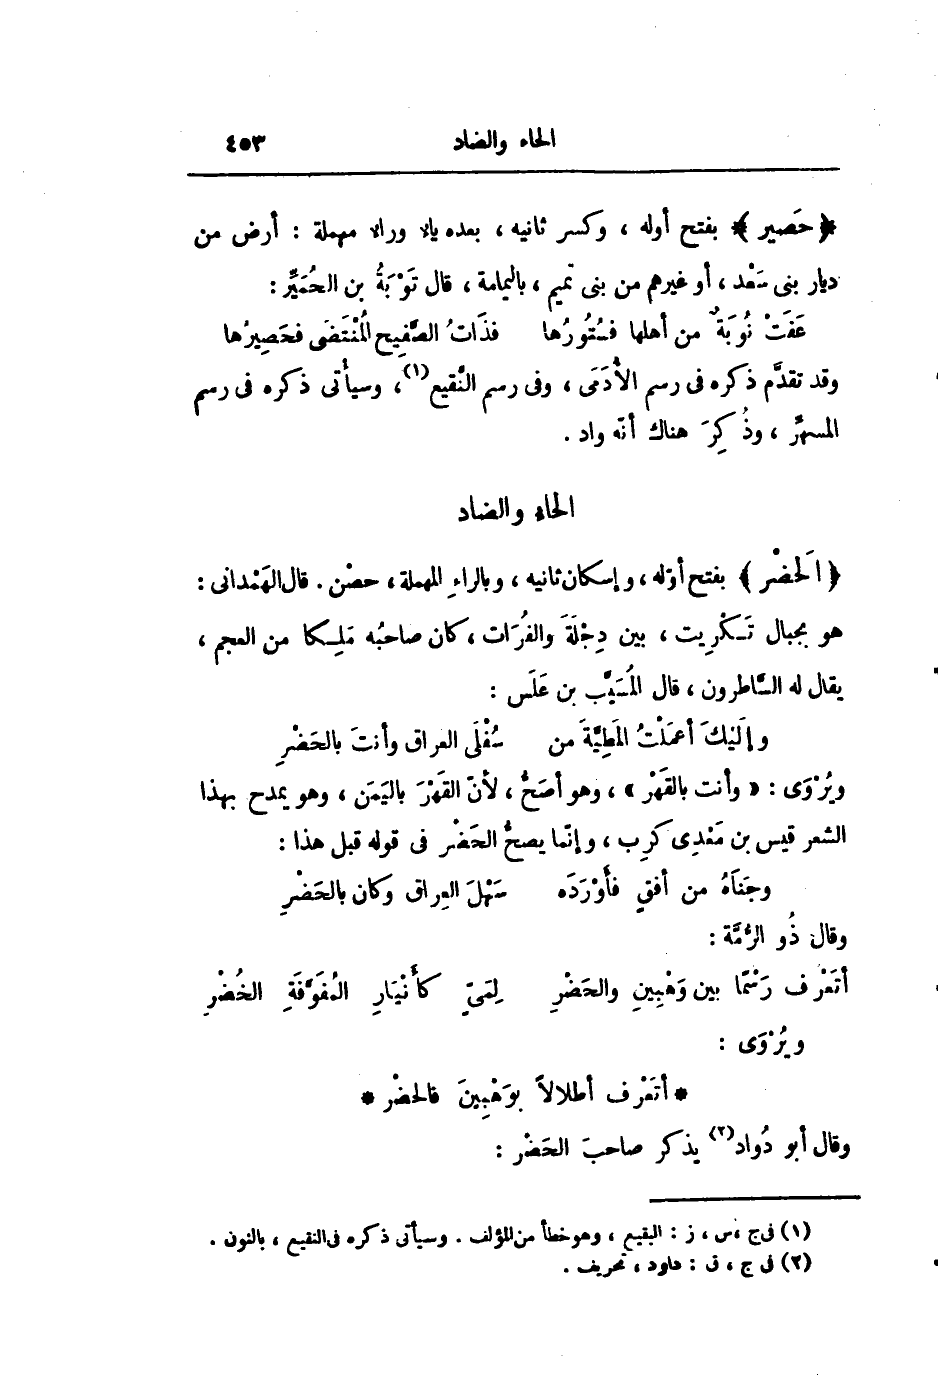 الحاء والضاد ٤٥٣
﴿ حَصير ﴾ بفتح أوله ، وكسر ثانيه ، بعده ياء وراء مهملة : أرض من
ديار بنى سَعْد ، أو غيرهم من بنى تميم ، باليمامة ، قال تَوْبَةُ بن الحُمَيِّر :
عَفَتْ نُوبَةٌ من أهلها فسُتُورُها فذَاتُ الصَّفِيح المُنْتَضَى فحَصِيرُها
وقد تقدَّم ذكره فى رسم الأَدَمَى ، وفى رسم النَّقيع(١)، وسيأتى ذكره فى رسم
المسهَّر ، وذُكِرَ هناك أنّه واد .
الحاء والضاد
﴿ الحَضْر ﴾ بفتح أوّله ، وإسكان ثانيه ، وبالراءِ المهملة ، حصْن . قال الهَمْدانى :
هو بجبال تَكْرِيت ، بين دِجْلَةَ والفُرَات ، كان صاحبُه مَلِكا من العجم ،
يقال له السَّاطرون ، قال المُسَيَّب بن عَلَس :
وإلَيْكَ أعمَلْتُ المَطِيَّةَ من سُفْلَى العراق وأنتَ بالحَضْرِ
ويُرْوَى : « وأنت بالقَهْر » ، وهو أصَحُّ ، لأنّ القَهْرَ باليَمَن ، وهو يمدح بهذا
الشعر قيس بن مَعْدِى كَرِب ، وإنّما يصحُّ الحَضْر فى قوله قبل هذا :
وجَنَاهُ من أفقٍ فأَوْرَدَه سَهْلَ العِراق وكان بالحَضْرِ
وقال ذُو الرُّمَّة :
أتَعْرْف رَسْمًا بين وَهْبِينِ والحَضْرِ لِمَىٍّ كأَنْيَارِ المُفَوَّفَةِ الخُضْرِ
ويُرْوَى :
* أتَعْرْف أطلالاً بوَهْبِينَ فالحضْر *
وقال أبو دُواد(٢) يذكر صاحبَ الحَضْر :
(١) فى ج ، س ، ز : البقيع ، وهو خطأ من المؤلف . وسيأتى ذكره فى النقيع ، بالنون .
(٢) فى ج ، ق : داود ، تحريف .